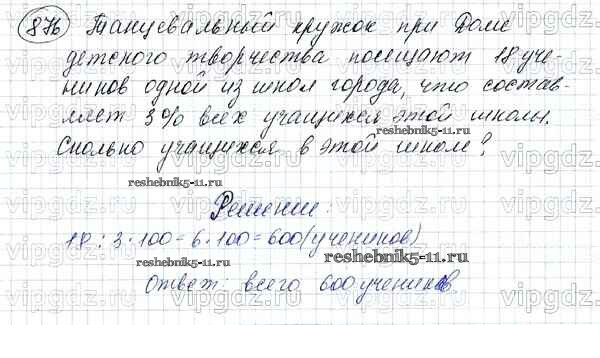 876 Танцевальный кружок при Доме
детского творчества посещают 18 уче-
ников одной из школ города, что состав-
ляет 3% всех учащихся этой школы.
reshebnik5-11.ru
Сколько учащихся в этой школе?
reshebnik5-11.ru
Решение:
18 : 3 · 100 = 6 · 100 = 600 (учеников)
reshebnik5-11.ru
Ответ: всего 600 учеников.
vipgdz.ru